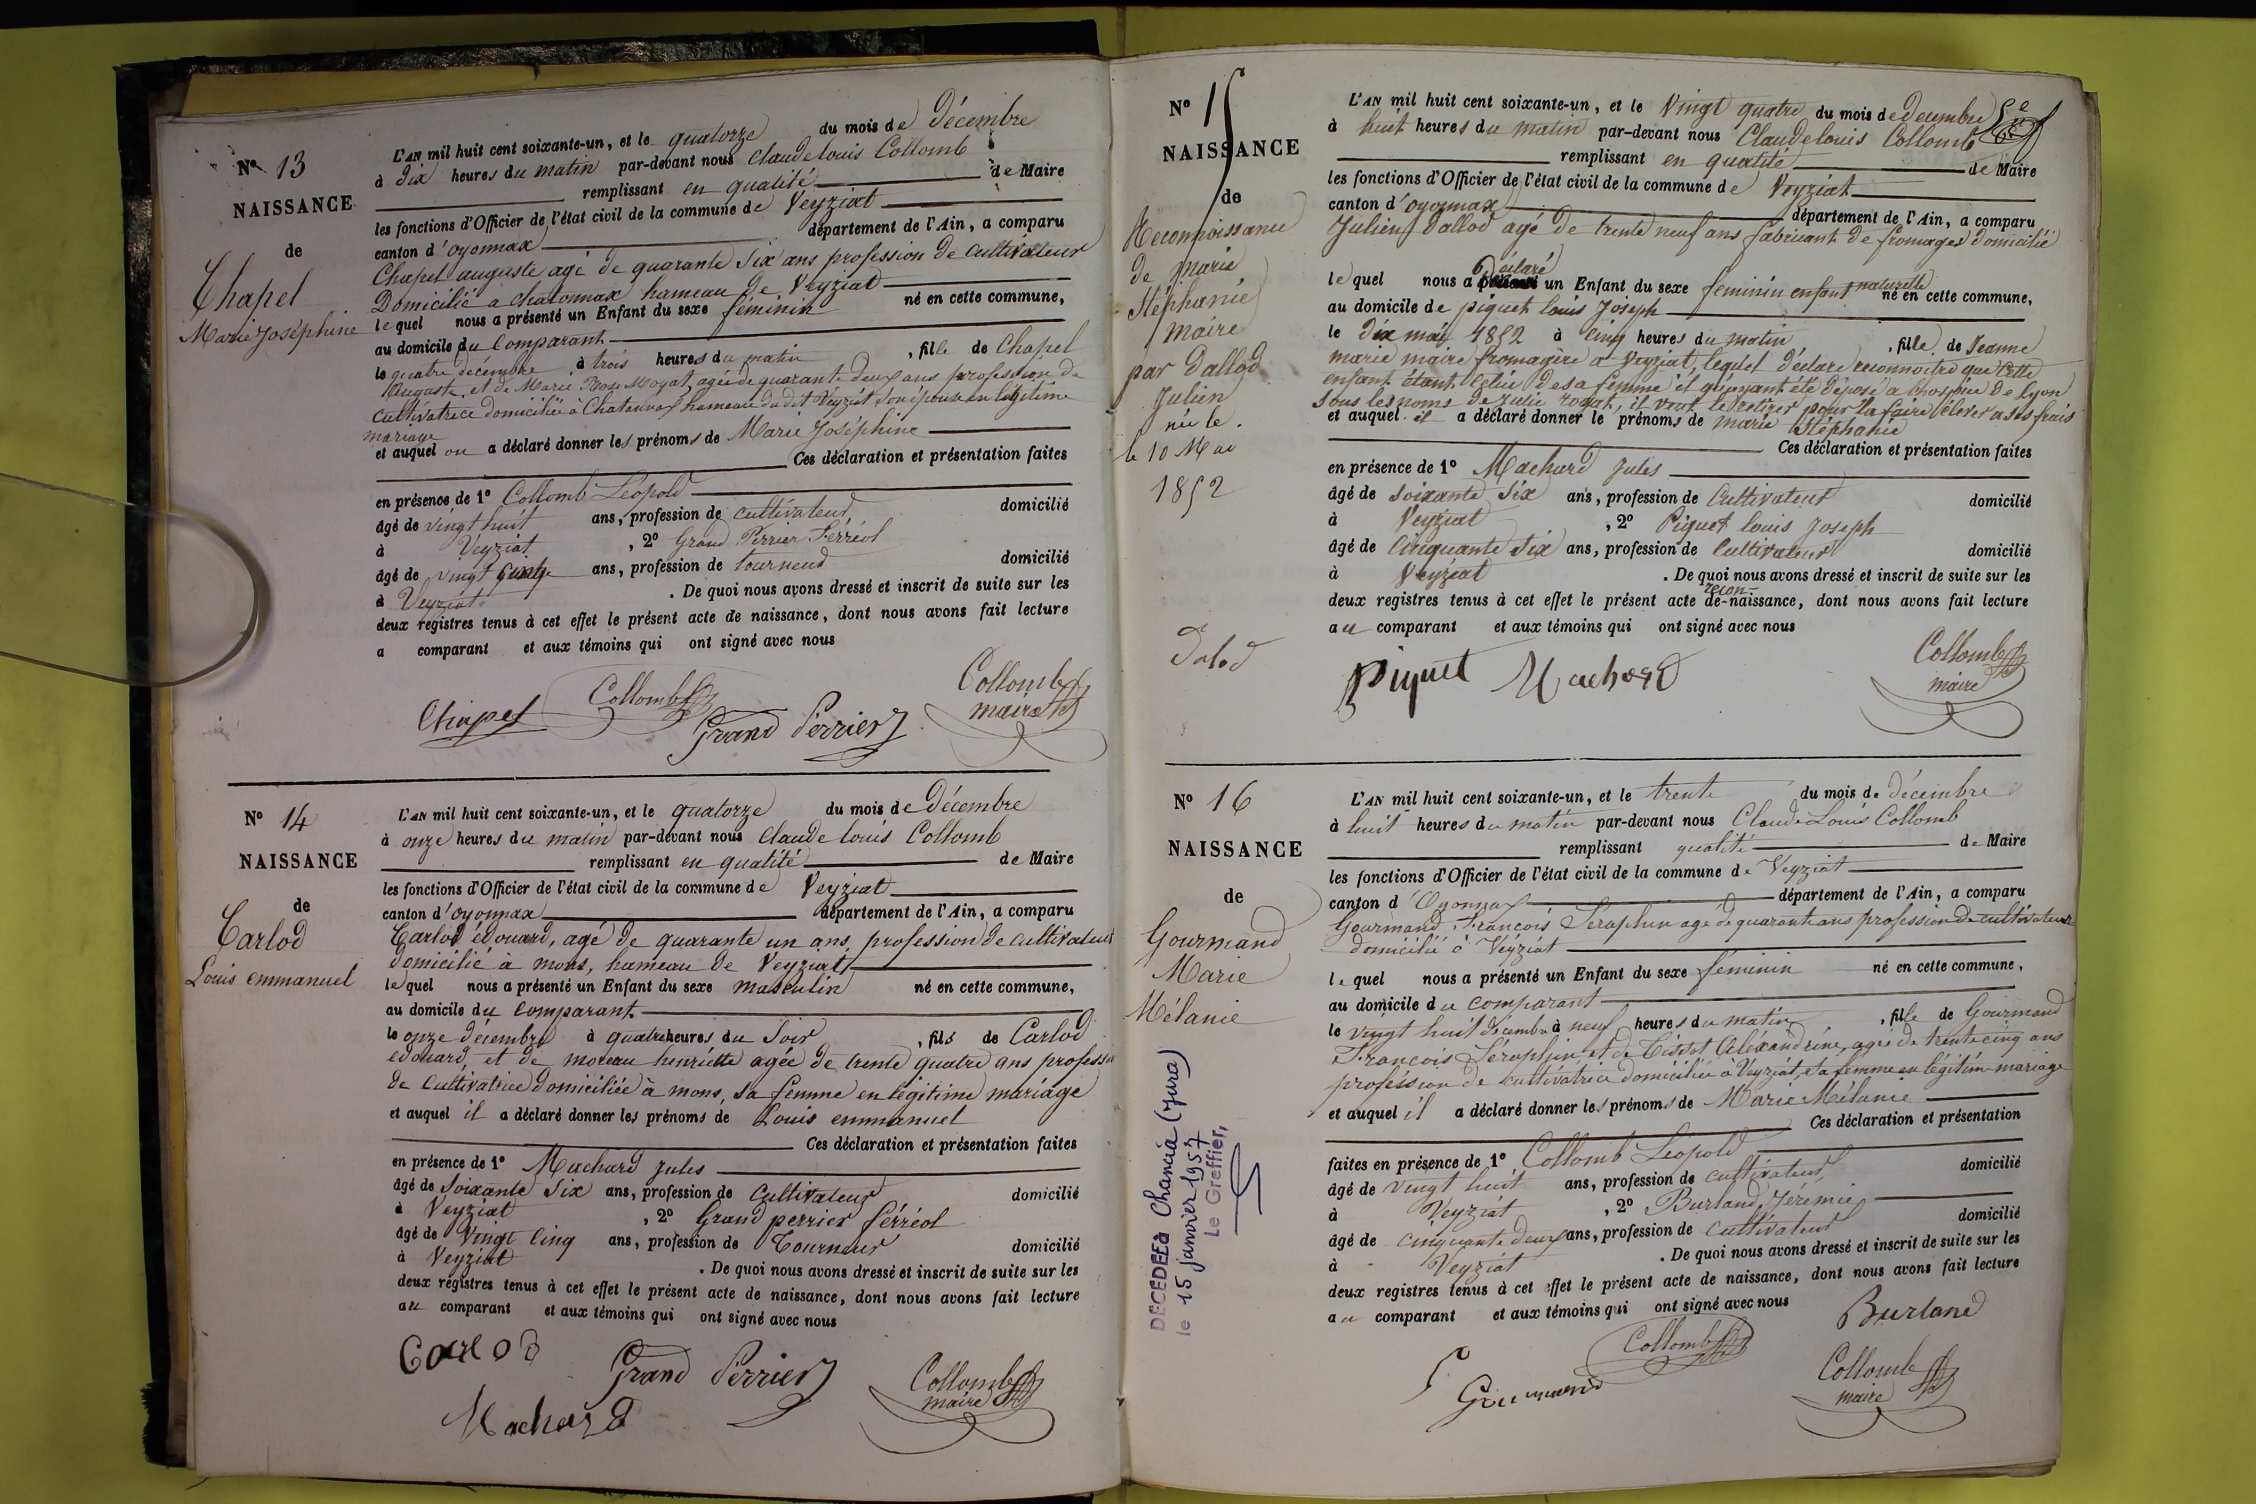 Nº 13
NAISSANCE
de
Chapel
Marie Joséphine
L'AN mil huit cent soixante-un, et le quatorze du mois de Décembre
à dix heures du matin par-devant nous Claude louis Collomb
remplissant en qualité de Maire
les fonctions d'Officier de l'état civil de la commune de Veyziat
canton d'oyonnax département de l'Ain, a comparu
Chapel auguste agé de quarante six ans profession de cultivateur
Domicilié a chatonnax hameau de Veyziat
lequel nous a présenté un Enfant du sexe féminin né en cette commune,
au domicile du Comparant
le quatre décembre à trois heures du matin, fille de Chapel
Auguste et de Marie Rose Moyat, agée de quarante deux ans profession de
cultivatrice domiciliée à Chatonnax hameau du dit Veyziat son épouse en légitime
mariage
et auquel on a déclaré donner les prénoms de Marie Joséphine
Ces déclaration et présentation faites
en présence de 1º Collomb Léopold
âgé de vingt huit ans, profession de cultivateur domicilié
à Veyziat, 2º Grand Perrier Ferréol
âgé de vingt cinq ans, profession de tourneur domicilié
à Veyziat. De quoi nous avons dressé et inscrit de suite sur les
deux registres tenus à cet effet le présent acte de naissance, dont nous avons fait lecture
a comparant et aux témoins qui ont signé avec nous
Chapel Collomb Grand Perrier Collomb
maire
Nº 14
NAISSANCE
de
Carlod
Louis emmanuel
L'AN mil huit cent soixante-un, et le quatorze du mois de Décembre
à onze heures du matin par-devant nous Claude louis Collomb
remplissant en qualité de Maire
les fonctions d'Officier de l'état civil de la commune de Veyziat
canton d'oyonnax département de l'Ain, a comparu
Carlod édouard, agé de quarante un ans, profession de cultivateur
domicilié à mons, hameau de Veyziat
lequel nous a présenté un Enfant du sexe masculin né en cette commune,
au domicile du comparant
le onze décembre à quatre heures du soir, fils de Carlod
edouard et de moreau henriette agée de trente quatre ans profession
de cultivatrice domiciliée à mons, sa femme en légitime mariage
et auquel il a déclaré donner les prénoms de Louis emmanuel
Ces déclaration et présentation faites
en présence de 1º Machard jules
âgé de soixante six ans, profession de cultivateur domicilié
à Veyziat, 2º Grand perrier ferréol
âgé de Vingt cinq ans, profession de Tourneur domicilié
à Veyziat. De quoi nous avons dressé et inscrit de suite sur les
deux registres tenus à cet effet le présent acte de naissance, dont nous avons fait lecture
au comparant et aux témoins qui ont signé avec nous
Carlod Grand Perrier Collomb
maire
Machard
Nº 15
NAISSANCE
de
Reconnoissance
de marie
Stéphanie
maire
par Dallod
Julien
née le.
le 10 Mai
1852
L'AN mil huit cent soixante-un, et le Vingt quatre du mois de decembre
à huit heures du matin par-devant nous Claude louis Collomb
remplissant en qualité de Maire
les fonctions d'Officier de l'état civil de la commune de Veyziat
canton d'oyonnax département de l'Ain, a comparu
Julien Dallod agé de trente neuf ans fabricant de fromages domicilié
déclaré
lequel nous a un Enfant du sexe feminin enfant naturelle né en cette commune,
au domicile de piquet louis Joseph
le dix mai 1852 à cinq heures du matin, fille de Jeanne
marie maire fromagère a Veyziat, lequel déclare reconnoitre que cette
enfant étant celui de sa femme et qu'ayant été déposé a l'hospice de lyon
sous les noms de Julie rogat, il veut le retirer pour la faire élever a ses frais
et auquel il a déclaré donner le prénoms de marie Stéphanie
Ces déclaration et présentation faites
en présence de 1º Machard jules
âgé de soixante six ans, profession de Cultivateur domicilié
à Veyziat, 2º Piquet louis Joseph
âgé de Cinquante six ans, profession de Cultivateur domicilié
à Veyziat. De quoi nous avons dressé et inscrit de suite sur les
recon-
deux registres tenus à cet effet le présent acte de naissance, dont nous avons fait lecture
au comparant et aux témoins qui ont signé avec nous
Dalod Piquet Machard Collomb
maire
Nº 16
NAISSANCE
de
Gourmand
Marie
Mélanie
DECEDEE à Chancia (Jura)
le 15 janvier 1957
Le Greffier,
L'AN mil huit cent soixante-un, et le trente du mois de décembre
à huit heures du matin par-devant nous Claude Louis Collomb
remplissant qualité de Maire
les fonctions d'Officier de l'état civil de la commune de Veyziat
canton d'Oyonnax département de l'Ain, a comparu
Gourmand François Séraphin agé de quarante ans profession de cultivateur
domicilié à Veyziat
lequel nous a présenté un Enfant du sexe feminin né en cette commune,
au domicile du comparant
le vingt huit décembre à neuf heures du matin, fille de Gourmand
François Séraphin et de Tissot Alexandrine, agée de trente cinq ans
profession de cultivatrice domiciliée à Veyziat, sa femme en légitime mariage
et auquel il a déclaré donner les prénoms de Marie Mélanie
Ces déclaration et présentation
faites en présence de 1º Collomb Léopold
âgé de vingt huit ans, profession de cultivateur, domicilié
à Veyziat, 2º Burland Jérémie
âgé de cinquante deux ans, profession de cultivateur domicilié
à Veyziat. De quoi nous avons dressé et inscrit de suite sur les
deux registres tenus à cet effet le présent acte de naissance, dont nous avons fait lecture
au comparant et aux témoins qui ont signé avec nous
Collomb Burland
Gourmand Collomb
maire